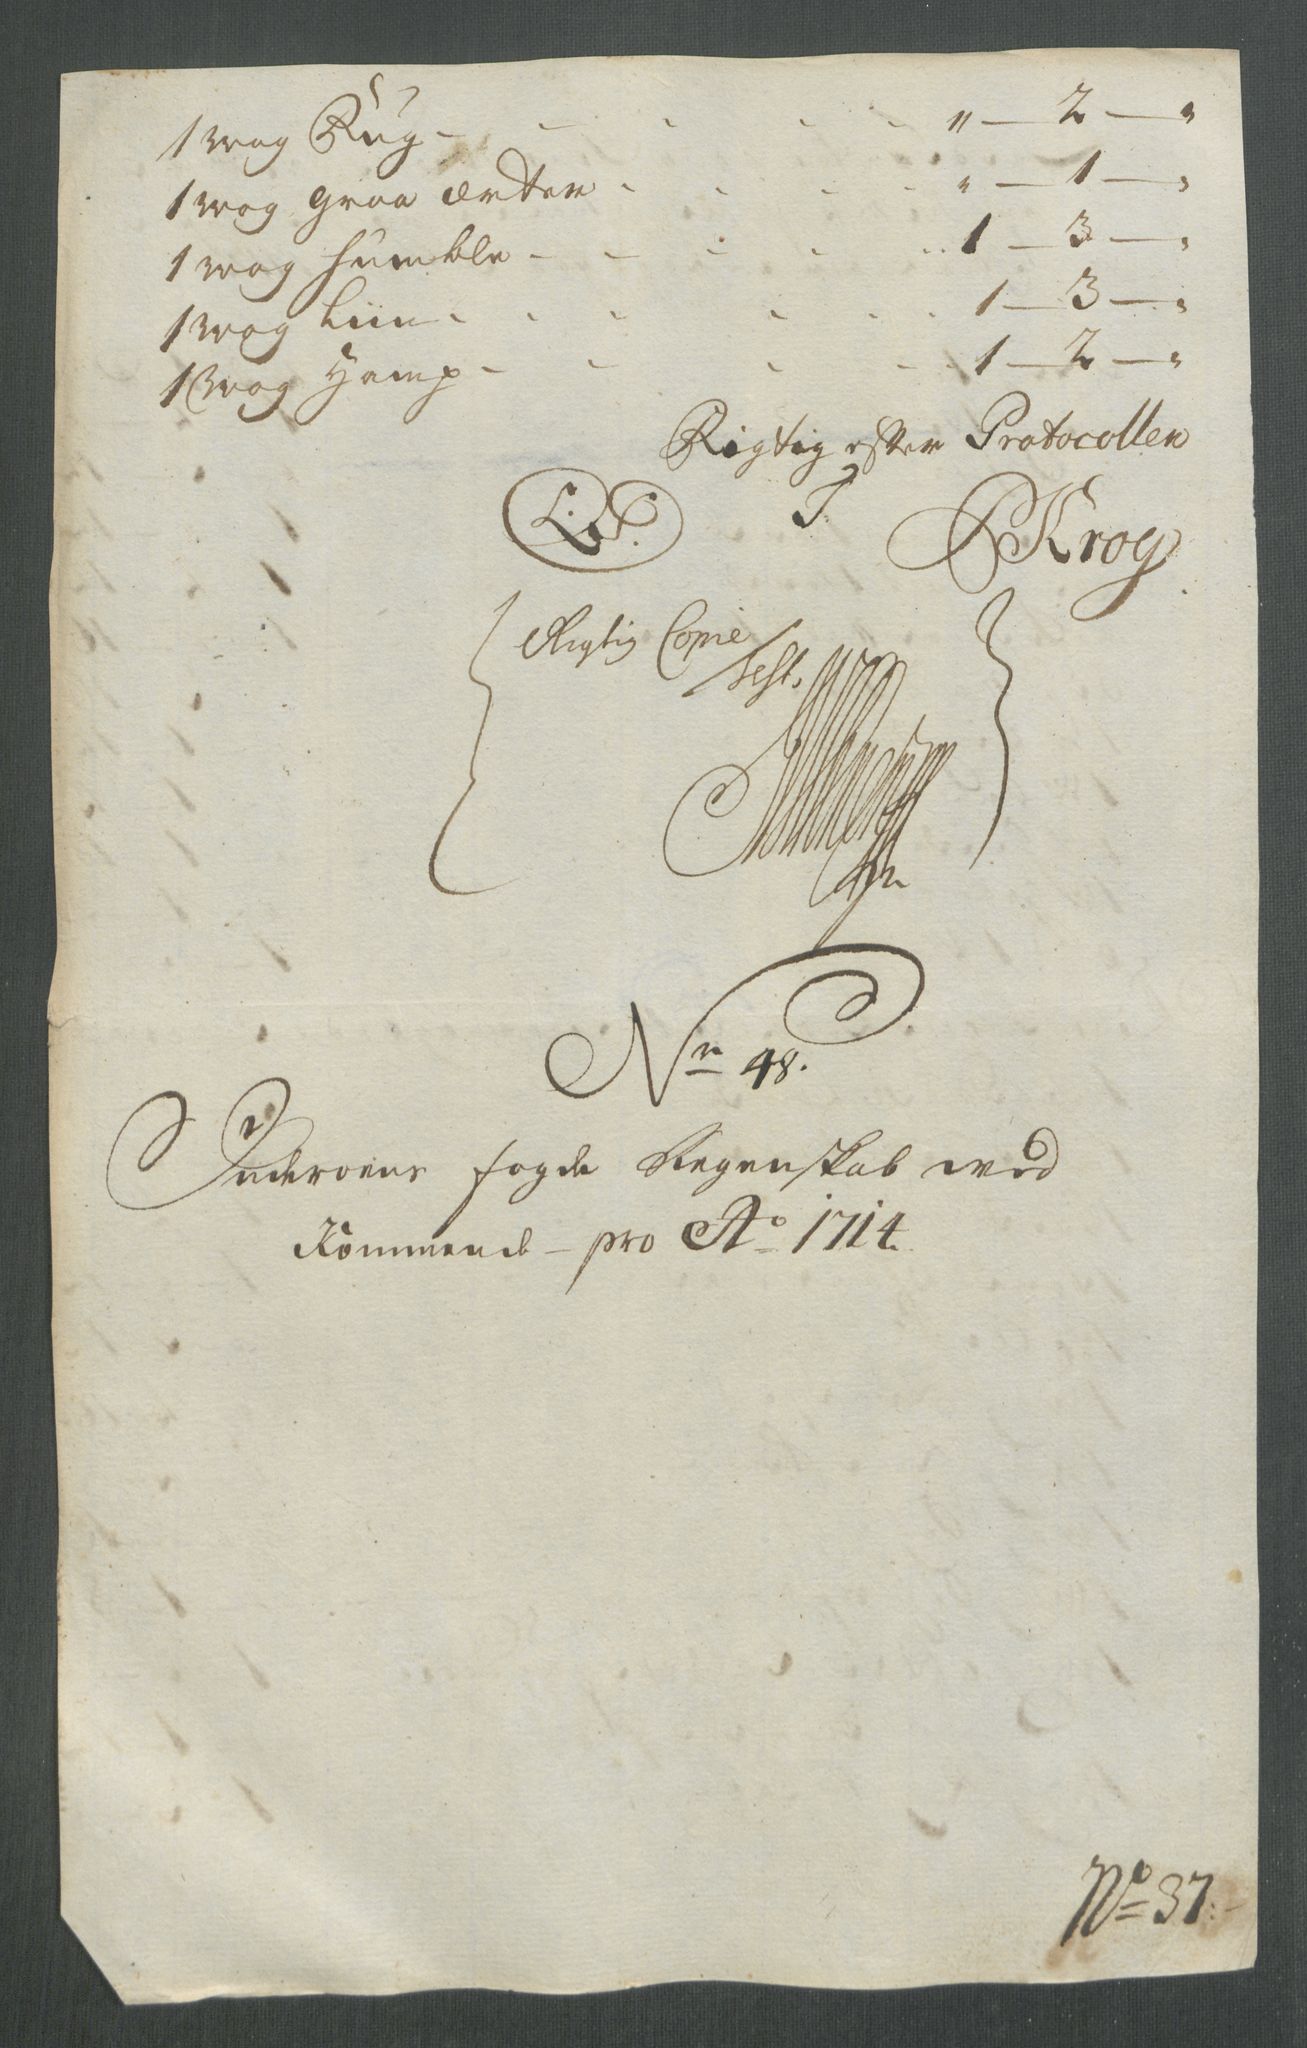 1 wog Rüg - - - - - „ — 2 — „
1 wog graa ærter - - - - „ — 1 — „
1 wog humble - - - - - 1 — 3 — „
1 wog Liin - - - - - - 1 — 3 — „
1 wog Hamp - - - - - 1 — 2 — „
Rigtig efter Protocollen
L. S. T. Krog
Rigtig Copie
test.
Nr 48.
Inderøens fogde Regenskab wed
Kommende - pro Ao 1714.
No 37.